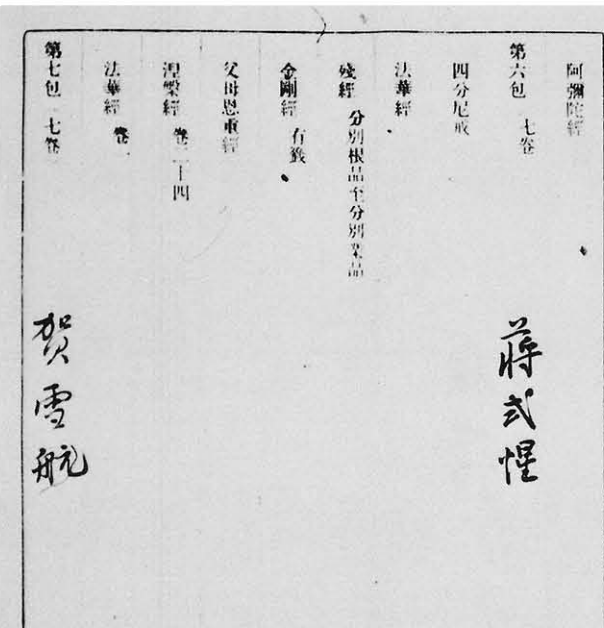 阿彌陀經
第六包 七卷 蔣式惺
四分尼戒
法華經
殘經 分別根品至分別業品
金剛經 有籤
父母恩重經
涅槃經 卷二十四
法華經 卷一
第七包 七卷 贺雪航